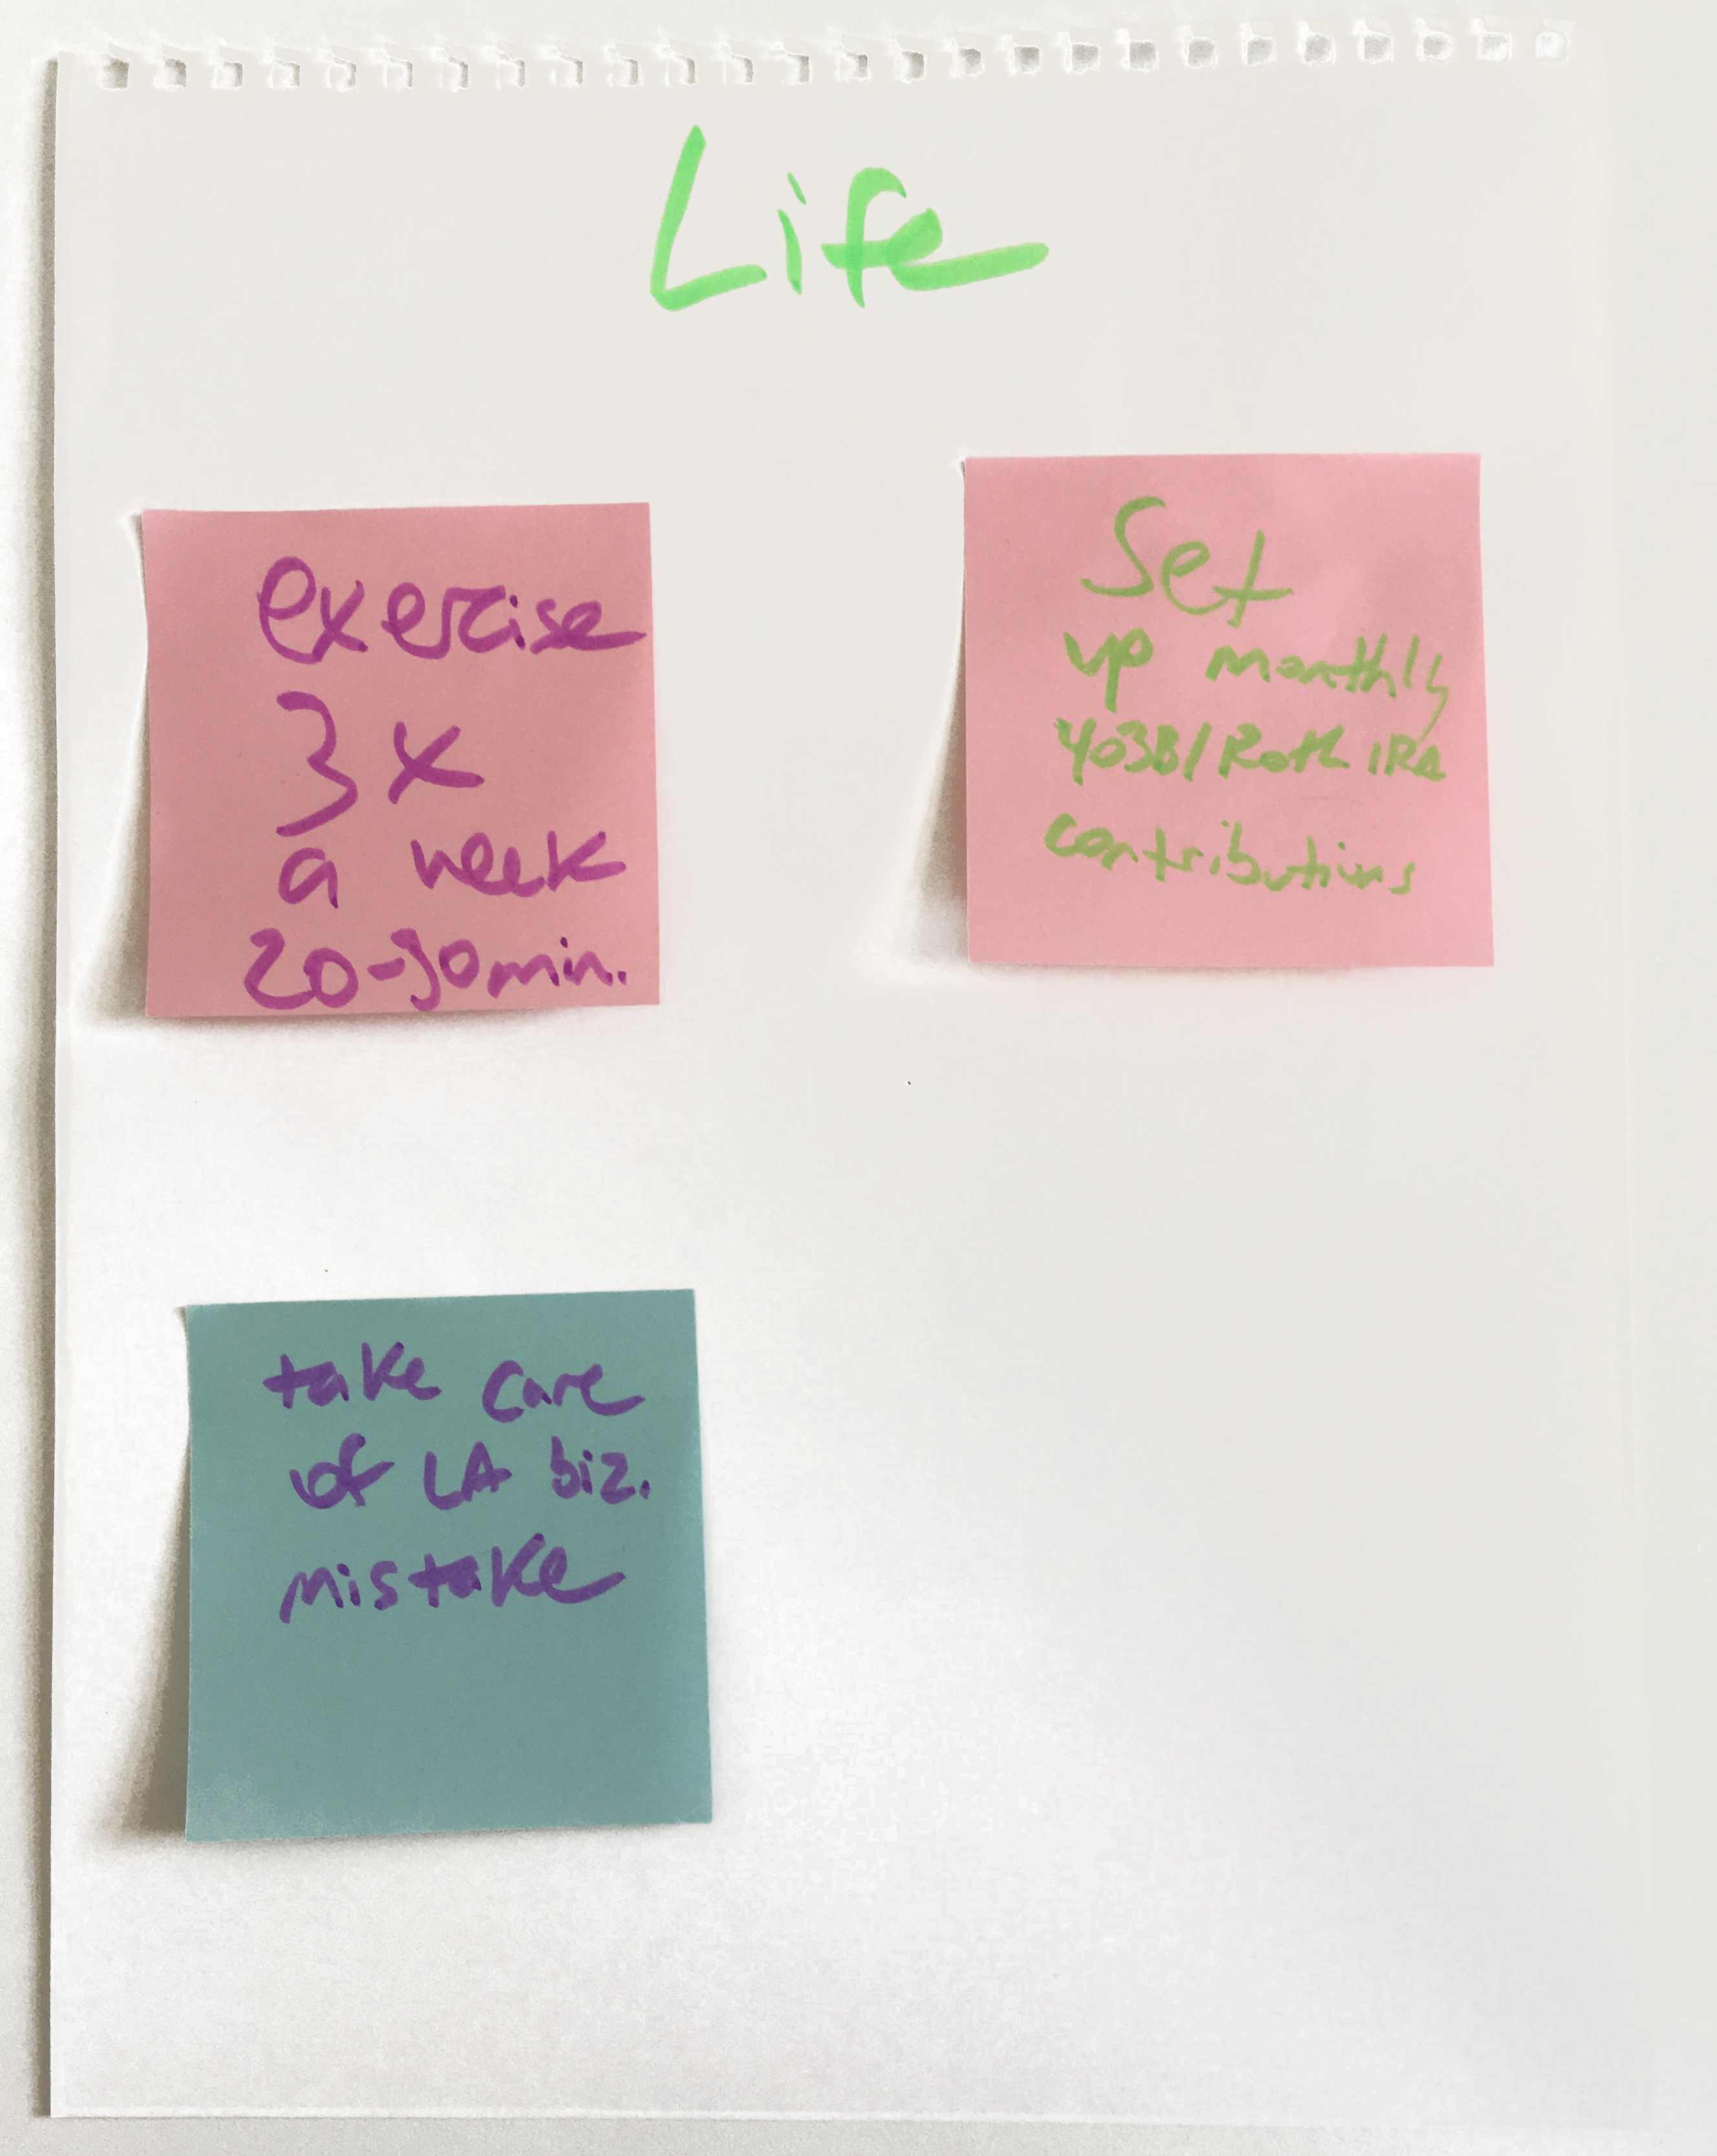 Life
exercise
3x
a week
20-30min.
Set
up monthly
403B/Roth IRA
contributions
take care
of LA biz.
mistake